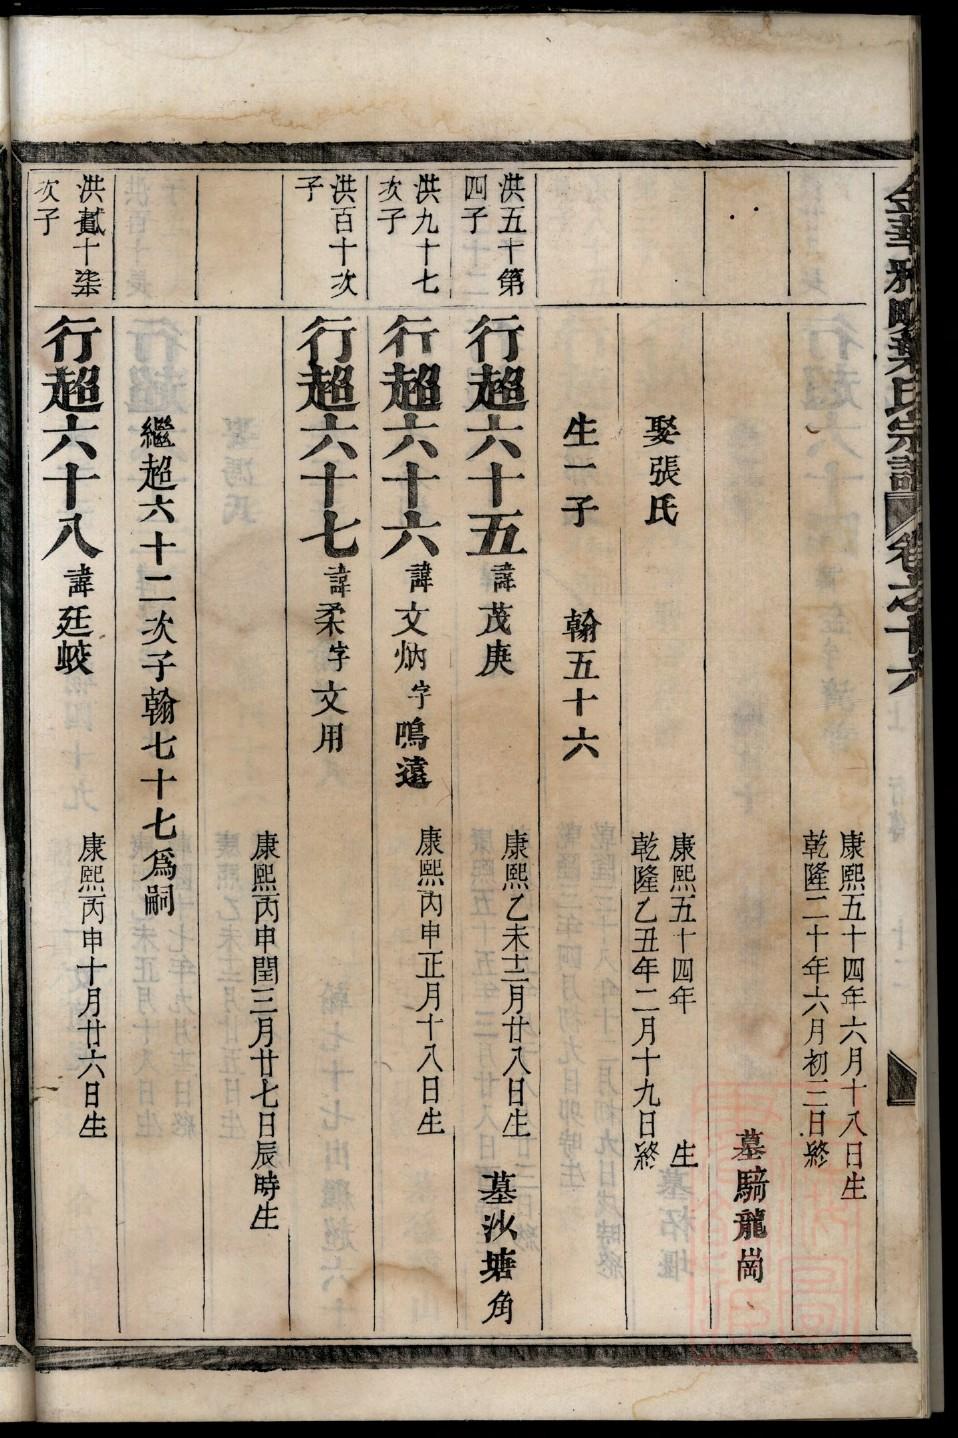 金華雅畈葉氏宗譜 卷之十六
康熙五十四年六月十八日生
乾隆二十年六月初三日終
墓騎龍崗
娶張氏
康熙五十四年 生
乾隆乙丑年二月十九日終
生一子 翰五十六
洪五十第
四子
行趙六十五 諱茂庚
康熙乙未十二月廿八日生
墓沙塘角
洪九十七
次子
行趙六十六 諱文炳字鳴遠
康熙丙申正月十八日生
洪百十次
子
行趙六十七 諱柔字文用
康熙丙申閏三月廿七日辰時生
繼超六十二次子翰七十七為嗣
洪貳十柒
次子
行趙六十八 諱廷蛟
康熙丙申十月廿六日生